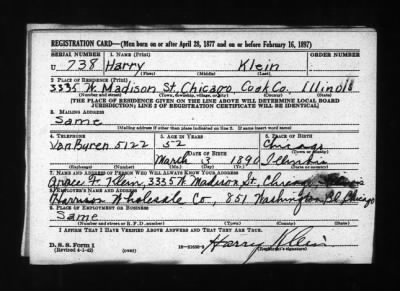 REGISTRATION CARD—(Men born on or after April 28, 1877 and on or before February 16, 1897)
SERIAL NUMBER 1. NAME (Print) ORDER NUMBER
U 738 Harry Klein
(First) (Middle) (Last)
2. PLACE OF RESIDENCE (Print)
3335 W. Madison St, Chicago Cook Co, Illinois
(Number and street) (Town, township, village, or city) (County) (State)
[THE PLACE OF RESIDENCE GIVEN ON THE LINE ABOVE WILL DETERMINE LOCAL BOARD
JURISDICTION; LINE 2 OF REGISTRATION CERTIFICATE WILL BE IDENTICAL]
3. MAILING ADDRESS
Same
[Mailing address if other than place indicated on line 2. If same insert word same]
4. TELEPHONE 5. AGE IN YEARS 6. PLACE OF BIRTH
VanByren 5122 52 Chicago
DATE OF BIRTH (Town or county)
March 3 1890 Illinois
(Exchange) (Number) (Mo.) (Day) (Yr.) (State or country)
7. NAME AND ADDRESS OF PERSON WHO WILL ALWAYS KNOW YOUR ADDRESS
Grace F Klein, 3335 W Madison St, Chicago
8. EMPLOYER'S NAME AND ADDRESS
Harrison Wholesale Co, 851 Washington Bl Chicago
9. PLACE OF EMPLOYMENT OR BUSINESS
Same
(Number and street or R. F. D. number) (Town) (County) (State)
I AFFIRM THAT I HAVE VERIFIED ABOVE ANSWERS AND THAT THEY ARE TRUE.
D. S. S. Form 1
(Revised 4-1-42) (over) 16—21630-2 Harry Klein
(Registrant's signature)